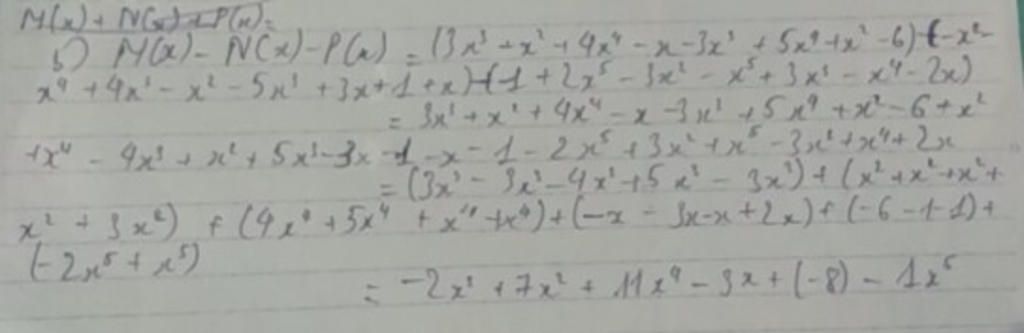 M(x) + N(x) + P(x) =
b) M(x) - N(x) - P(x) = (3x³ + x² + 4x⁴ - x - 3x³ + 5x⁴ + x² - 6) - (-x² -
x⁴ + 4x³ - x² - 5x³ + 3x + 1 + x) - (1 + 2x⁵ - 3x² - x⁵ + 3x³ - x⁴ - 2x)
= 3x³ + x² + 4x⁴ - x - 3x³ + 5x⁴ + x² - 6 + x²
+ x⁴ - 4x³ + x² + 5x³ - 3x - 1 - x - 1 - 2x⁵ + 3x² + x⁵ - 3x³ + x⁴ + 2x
= (3x³ - 3x³ - 4x³ + 5x³ - 3x³) + (x² + x² + x² +
x² + 3x²) + (4x⁴ + 5x⁴ + x⁴ + x⁴) + (-x - 3x - x + 2x) + (-6 - 1 - 1) +
(-2x⁵ + x⁵)
= -2x³ + 7x² + 11x⁴ - 3x + (-8) - 1x⁵